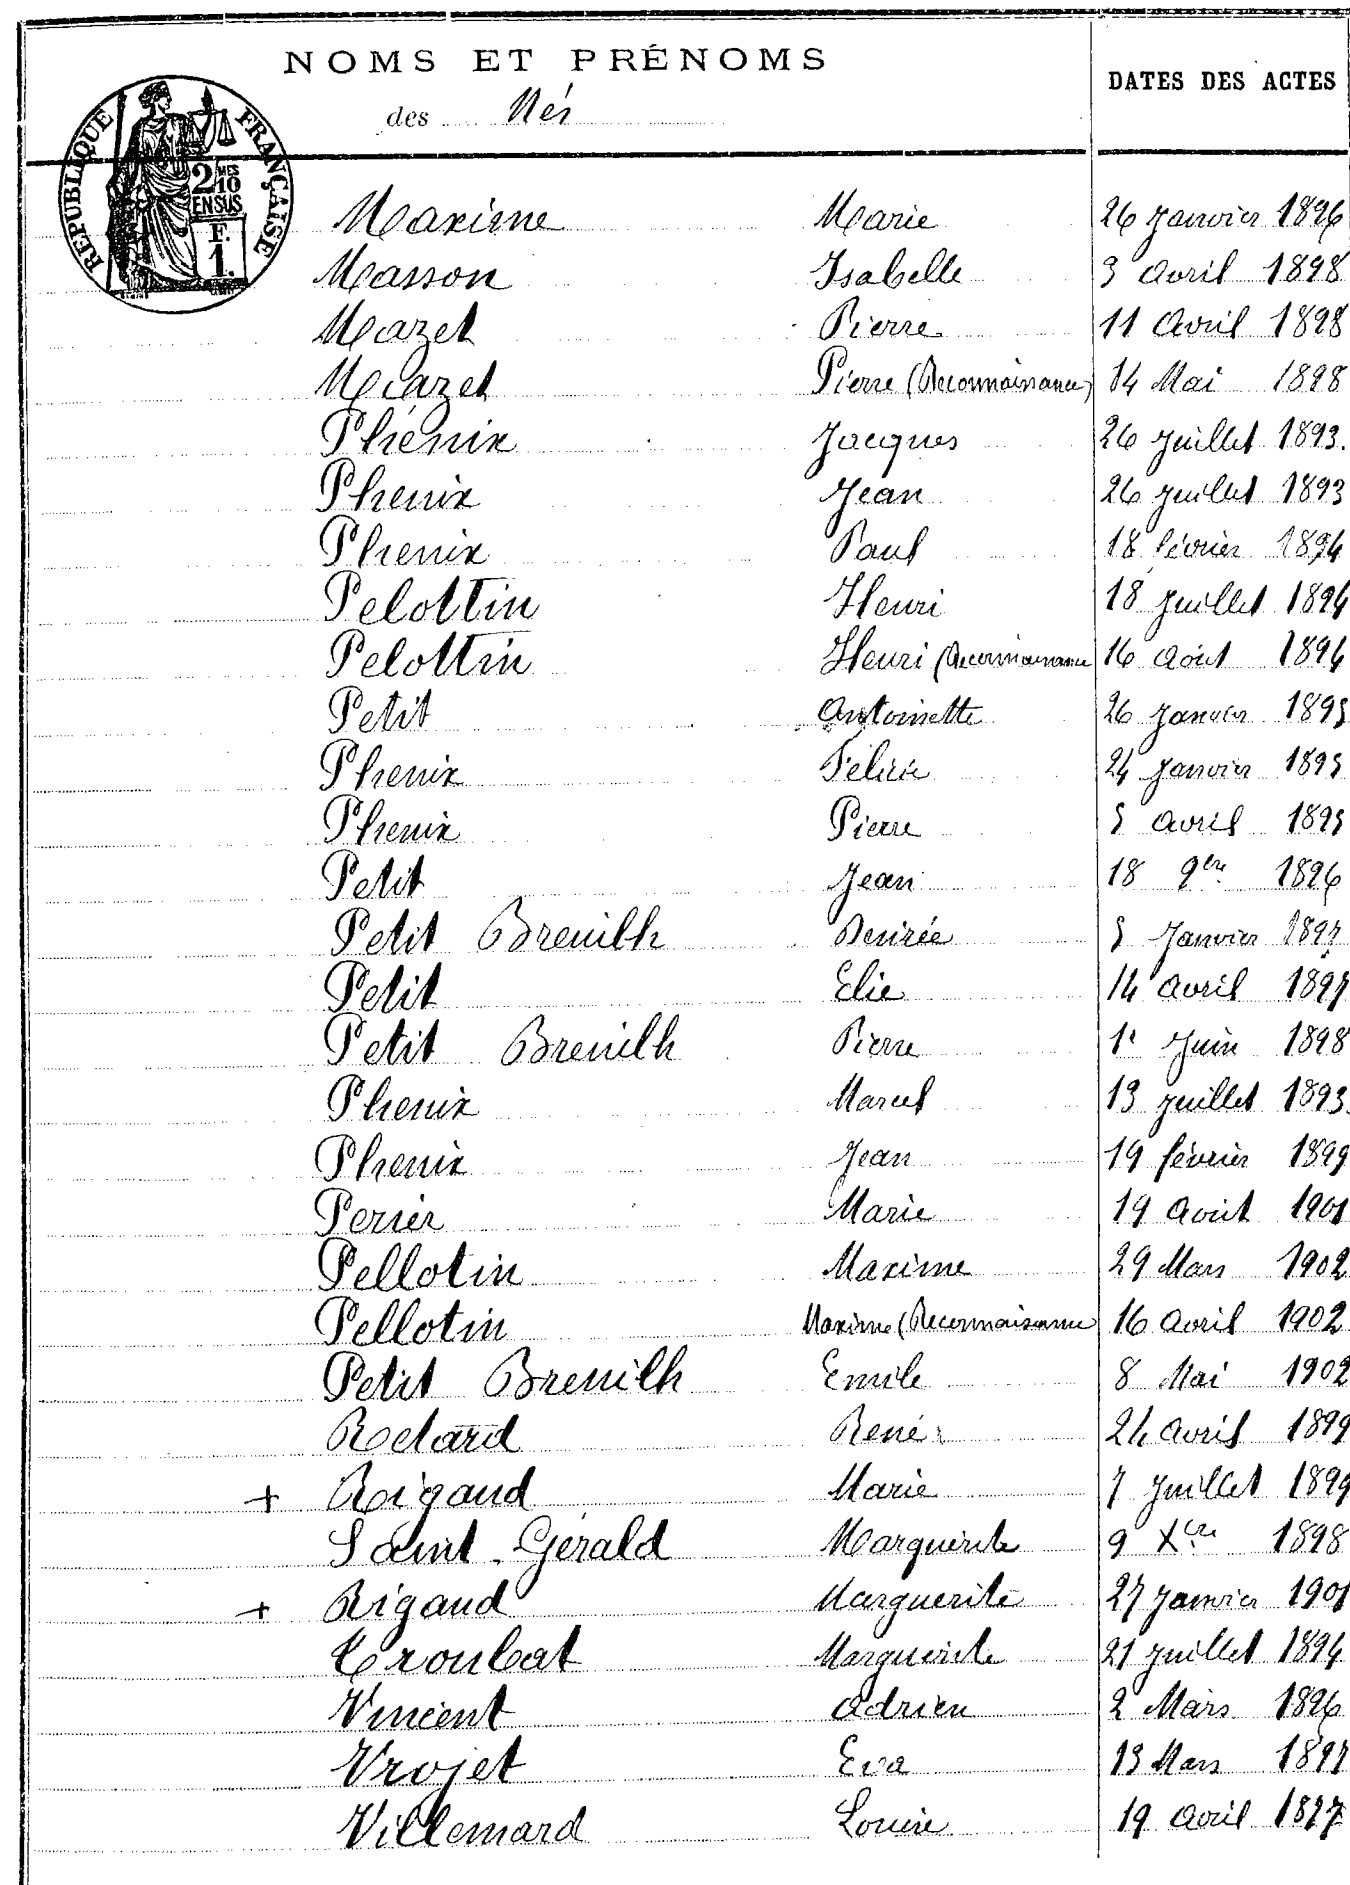 NOMS ET PRÉNOMS
des Nés
DATES DES ACTES
RÉPUBLIQUE FRANÇAISE
2 MES 10
EN SUS
F.
1.
Maxime Marie 26 Janvier 1896
Masson Isabelle 3 Avril 1898
Mazet Pierre 11 Avril 1898
Mazet Pierre (Reconnaissance) 14 Mai 1898
Phénix Jacques 26 Juillet 1893.
Phenix Jean 26 Juillet 1893
Phenix Paul 18 février 1894
Pelottin Henri 18 Juillet 1894
Pelottin Henri (Reconnaissance 16 Août 1894
Petit Antoinette 26 Janvier 1895
Phenix Félicie 24 Janvier 1895
Phenix Pierre 5 Avril 1895
Petit Jean 18 9bre 1896
Petit Breuilh Desirée 5 Janvier 1897
Petit Elie 14 Avril 1897
Petit Breuilh Pierre 1r Juin 1898
Phenix Marcel 13 Juillet 1893.
Phenix Jean 19 février 1899
Perrier Marie 19 Août 1901
Pellotin Maxime 29 Mars 1902
Pellotin Maxime (Reconnaissance 16 Avril 1902
Petit Breuilh Emile 8 Mai 1902
Retard René 24 Avril 1899
+ Rigaud Marie 7 Juillet 1899
Saint-Gérald Marguerite 9 Xbre 1898
+ Rigaud Marguerite 27 Janvier 1901
Troubat Marguerite 21 Juillet 1894
Vincent Adrien 2 Mars 1896
Vrojet Eva 13 Mars 1897
Villemard Louise 19 Avril 1897